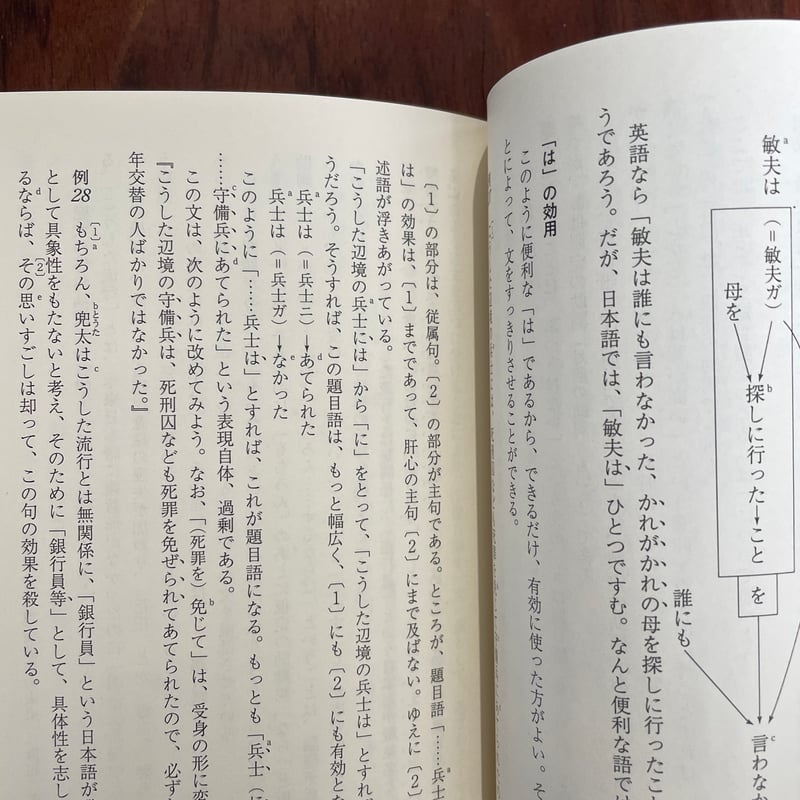 敏夫は
(=敏夫ガ)
母を
探しに行った→こと
を
誰にも
言わなか
英語なら「敏夫は誰にも言わなかった、かれがかれの母を探しに行ったこと
うであろう。だが、日本語では、「敏夫は」ひとつですむ。なんと便利な語で
「は」の効用
このように便利な「は」であるから、できるだけ、有効に使った方がよい。そ
とによって、文をすっきりさせることができる。
〔1〕の部分は、従属句。〔2〕の部分が主句である。ところが、題目語「……兵士
は」の効果は、〔1〕までであって、肝心の主句〔2〕にまで及ばない。ゆえに〔2〕
述語が浮きあがっている。
「こうした辺境の兵士には」から「に」をとって、「こうした辺境の兵士は」とすれ
うだろう。そうすれば、この題目語は、もっと幅広く、〔1〕にも〔2〕にも有効と
兵士は(=兵士ニ)→あてられた
兵士は(=兵士ガ)→なかった
このように「……兵士は」とすれば、これが題目語になる。もっとも「兵士(に
……守備兵にあてられた」という表現自体、過剰である。
この文は、次のように改めてみよう。なお、「(死罪を)免じて」は、受身の形に変
『こうした辺境の守備兵は、死刑囚なども死罪を免ぜられてあてられたので、必ず
年交替の人ばかりではなかった。』
例28 もちろん、兜太はこうした流行とは無関係に、「銀行員」という日本語が
として具象性をもたないと考え、そのために「銀行員等」として、具体性を志し
るならば、その思いすごしは却って、この句の効果を殺している。